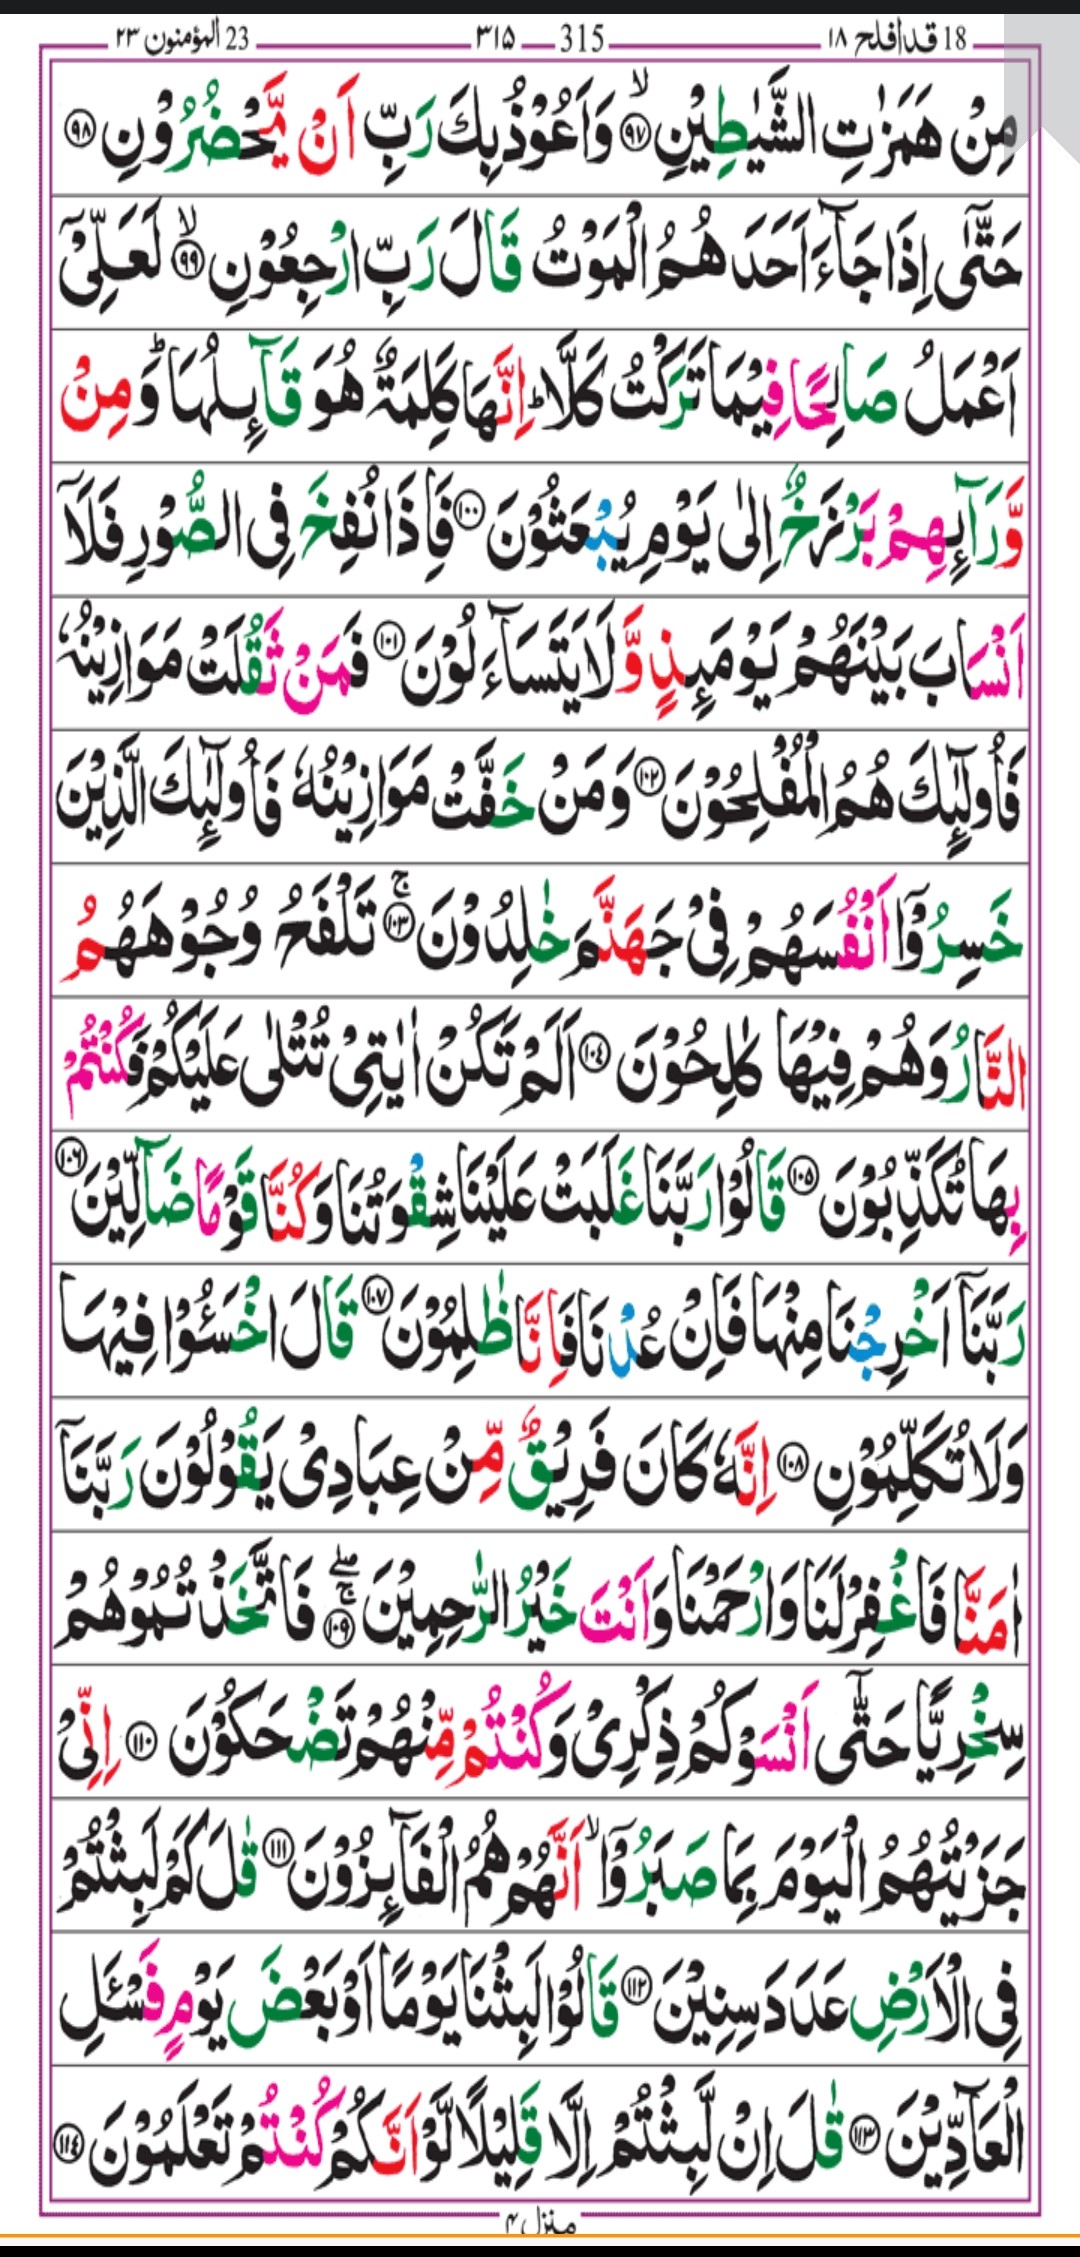 18 قدأفلح ١٨ 315 ٣١٥ 23 المؤمنون ٢٣
مِنْ هَمَزٰتِ الشَّيٰطِيْنِ ۙ‏﴿۹۷﴾ وَاَعُوْذُ بِكَ رَبِّ اَنْ يَّحْضُرُوْنِ ﴿۹۸﴾
حَتّٰٓى اِذَا جَآءَ اَحَدَهُمُ الْمَوْتُ قَالَ رَبِّ ارْجِعُوْنِ ۙ﴿۹۹﴾ لَعَلِّىْٓ
اَعْمَلُ صَالِحًا فِيْمَا تَرَكْتُ كَلَّا ؕ اِنَّهَا كَلِمَةٌ هُوَ قَآئِلُهَا ؕ وَمِنْ
وَّرَآئِهِمْ بَرْزَخٌ اِلٰى يَوْمِ يُبْعَثُوْنَ ﴿۱۰۰﴾ فَاِذَا نُفِخَ فِى الصُّوْرِ فَلَاۤ
اَنْسَابَ بَيْنَهُمْ يَوْمَئِذٍ وَّلَا يَتَسَآءَلُوْنَ ﴿۱۰۱﴾ فَمَنْ ثَقُلَتْ مَوَازِيْنُهٗ
فَاُولٰٓئِكَ هُمُ الْمُفْلِحُوْنَ ﴿۱۰۲﴾ وَمَنْ خَفَّتْ مَوَازِيْنُهٗ فَاُولٰٓئِكَ الَّذِيْنَ
خَسِرُوْۤا اَنْفُسَهُمْ فِىْ جَهَنَّمَ خٰلِدُوْنَ ۚ﴿۱۰۳﴾ تَلْفَحُ وُجُوْهَهُمُ
النَّارُ وَهُمْ فِيْهَا كٰلِحُوْنَ ﴿۱۰۴﴾ اَلَمْ تَكُنْ اٰيٰتِىْ تُتْلٰى عَلَيْكُمْ فَكُنْتُمْ
بِهَا تُكَذِّبُوْنَ ﴿۱۰۵﴾ قَالُوْا رَبَّنَا غَلَبَتْ عَلَيْنَا شِقْوَتُنَا وَكُنَّا قَوْمًا ضَآلِّيْنَ ﴿۱۰۶﴾
رَبَّنَاۤ اَخْرِجْنَا مِنْهَا فَاِنْ عُدْنَا فَاِنَّا ظٰلِمُوْنَ ﴿۱۰۷﴾ قَالَ اخْسَئُوْا فِيْهَا
وَلَا تُكَلِّمُوْنِ ﴿۱۰۸﴾ اِنَّهٗ كَانَ فَرِيْقٌ مِّنْ عِبَادِىْ يَقُوْلُوْنَ رَبَّنَاۤ
اٰمَنَّا فَاغْفِرْ لَنَا وَارْحَمْنَا وَاَنْتَ خَيْرُ الرّٰحِمِيْنَ ۚۖ﴿۱۰۹﴾ فَاتَّخَذْتُمُوْهُمْ
سِخْرِيًّا حَتّٰٓى اَنْسَوْكُمْ ذِكْرِىْ وَكُنْتُمْ مِّنْهُمْ تَضْحَكُوْنَ ﴿۱۱۰﴾ اِنِّىْ
جَزَيْتُهُمُ الْيَوْمَ بِمَا صَبَرُوْۤا ۙ اَنَّهُمْ هُمُ الْفَآئِزُوْنَ ﴿۱۱۱﴾ قٰلَ كَمْ لَبِثْتُمْ
فِى الْاَرْضِ عَدَدَ سِنِيْنَ ﴿۱۱۲﴾ قَالُوْا لَبِثْنَا يَوْمًا اَوْ بَعْضَ يَوْمٍ فَسْئَلِ
الْعَآدِّيْنَ ﴿۱۱۳﴾ قٰلَ اِنْ لَّبِثْتُمْ اِلَّا قَلِيْلًا لَّوْ اَنَّكُمْ كُنْتُمْ تَعْلَمُوْنَ ﴿۱۱۴﴾
منزل ۴